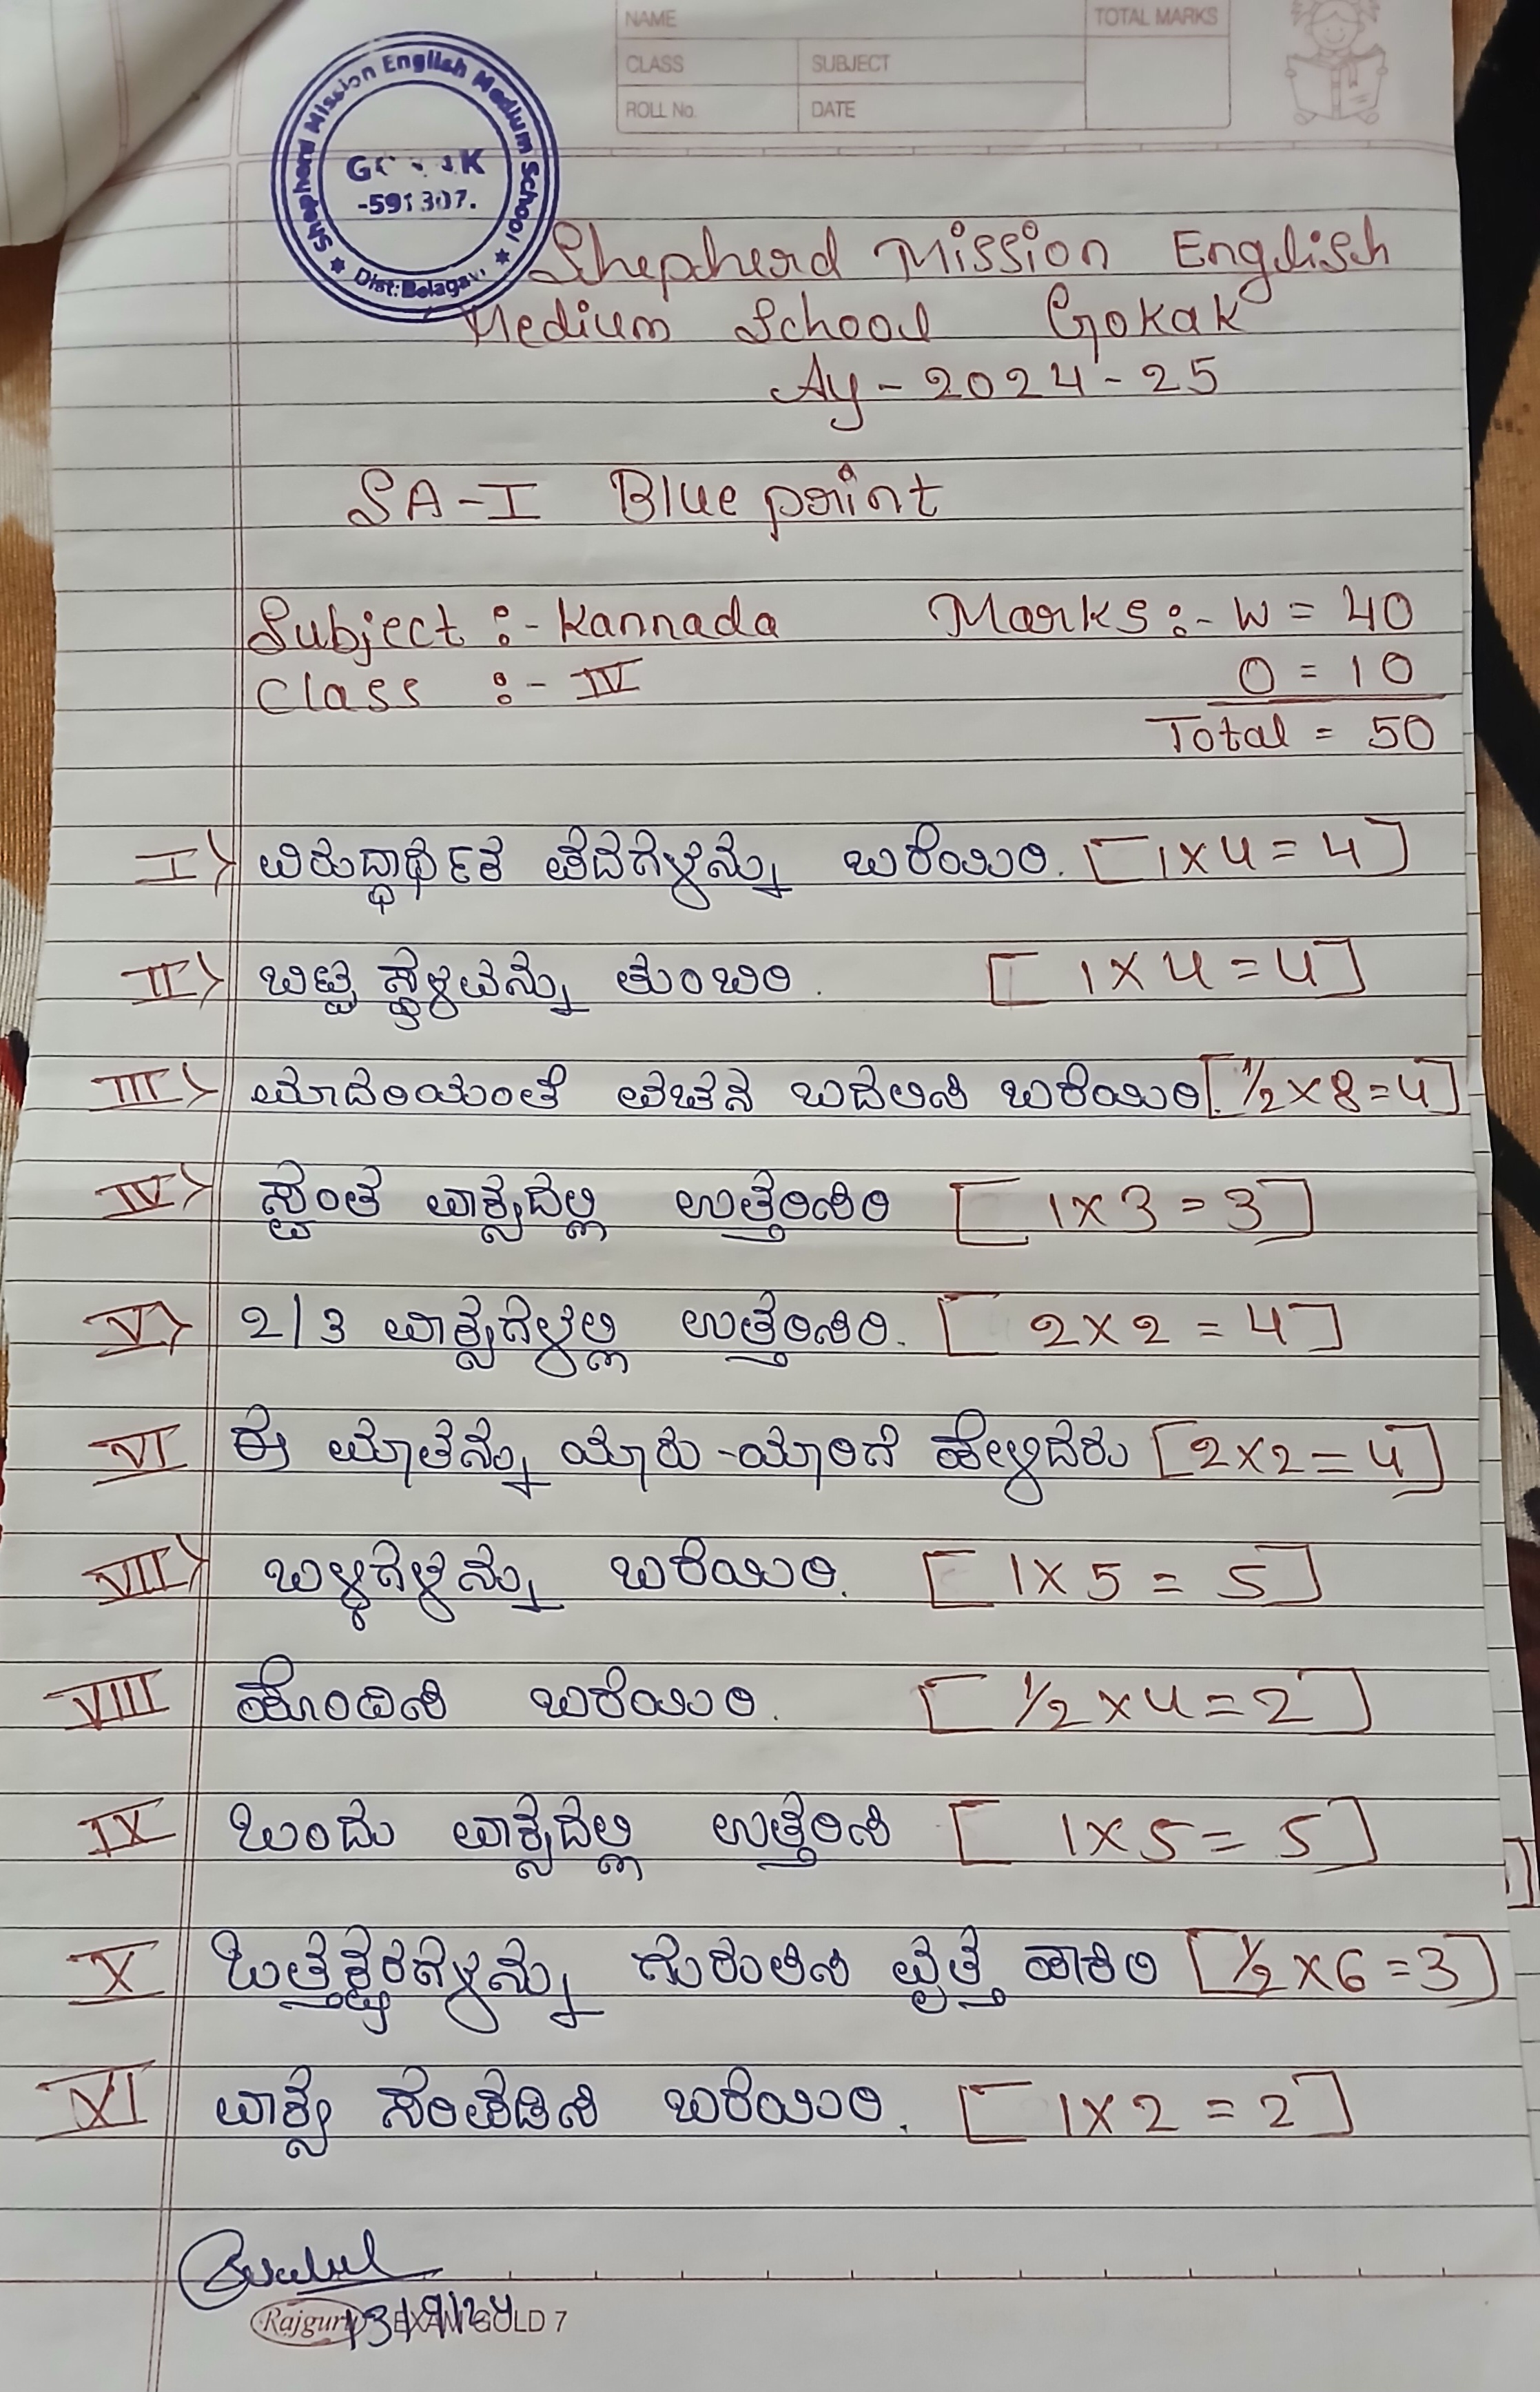 NAME
TOTAL MARKS
CLASS
SUBJECT
ROLL No.
DATE
Shepherd Mission English Medium School
-591307.
Dist: Belagavi
Shepherd Mission English
Medium School Gokak
Ay - 2024-25
SA-I Blue print
Subject :- Kannada Marks :- W = 40
Class :- IV O = 10
Total = 50
I> ವಿರುದ್ಧಾರ್ಥಕ ಪದಗಳನ್ನು ಬರೆಯಿರಿ. [1×4=4]
II> ಬಿಟ್ಟ ಸ್ಥಳವನ್ನು ತುಂಬಿರಿ. [1×4=4]
III> ಮಾದರಿಯಂತೆ ವಚನ ಬದಲಿಸಿ ಬರೆಯಿರಿ. [1/2×8=4]
IV> ಸ್ವಂತ ವಾಕ್ಯದಲ್ಲಿ ಉತ್ತರಿಸಿರಿ [1×3=3]
V> 2/3 ವಾಕ್ಯಗಳಲ್ಲಿ ಉತ್ತರಿಸಿರಿ. [2×2=4]
VI ಈ ಮಾತನ್ನು ಯಾರು-ಯಾರಿಗೆ ಹೇಳಿದರು [2×2=4]
VII> ಬಳ್ಳಗಳನ್ನು ಬರೆಯಿರಿ. [1×5=5]
VIII ಹೊಂದಿಸಿ ಬರೆಯಿರಿ. [1/2×4=2]
IX ಒಂದು ವಾಕ್ಯದಲ್ಲಿ ಉತ್ತರಿಸಿ [1×5=5]
X ಒತ್ತಕ್ಷರಗಳನ್ನು ಗುರುತಿಸಿ ವೃತ್ತ ಹಾಕಿರಿ [1/2×6=3]
XI ವಾಕ್ಯ ಸಂಪಡಿಸಿ ಬರೆಯಿರಿ. [1×2=2]
13/9/24
Rajguru EXAM GOLD 7